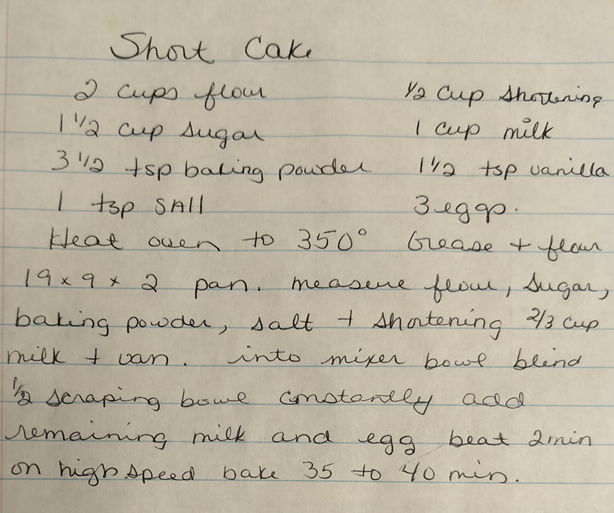 Short Cake
2 cups flour 1/2 cup shortening
1 1/2 cup sugar 1 cup milk
3 1/2 tsp baking powder 1 1/2 tsp vanilla
1 tsp SAll 3 eggs.
Heat oven to 350° Grease + flour
19 x 9 x 2 pan. measure flour, sugar,
baking powder, salt + shortening 2/3 cup
milk + van. into mixer bowl blind
1/2 scraping bowl constantly add
remaining milk and egg beat 2 min
on high speed bake 35 to 40 min.